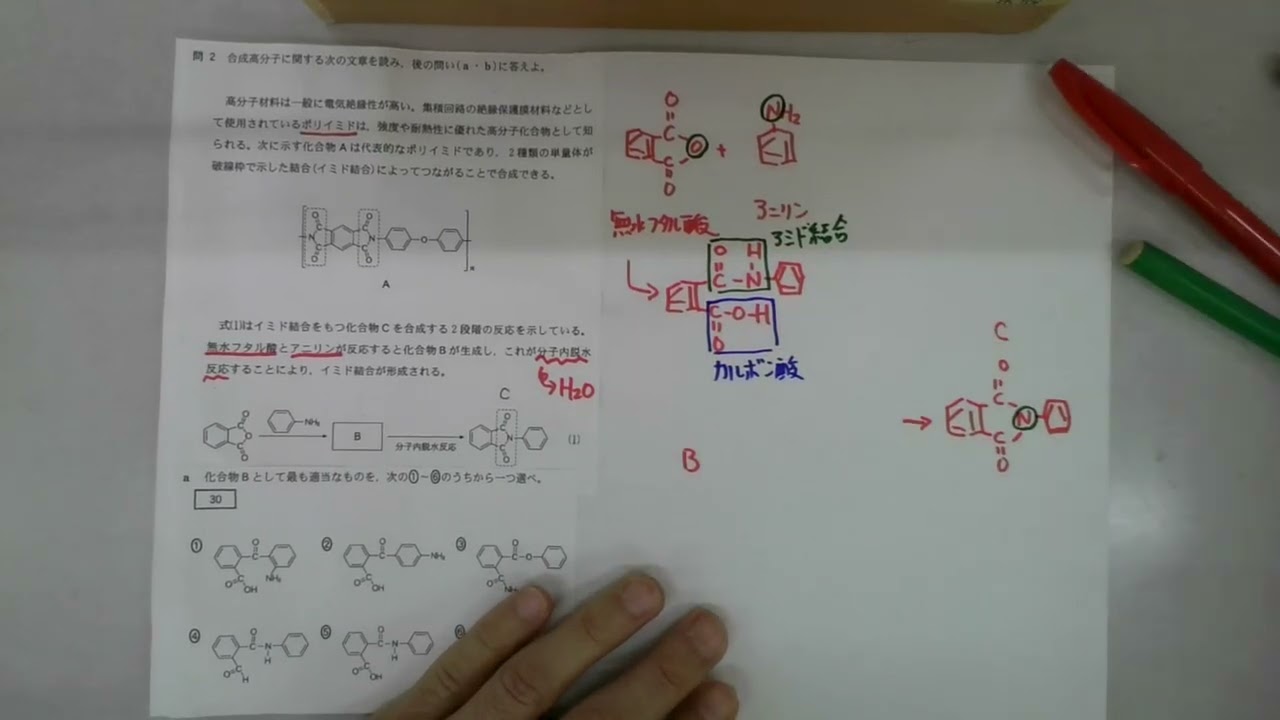 問2 合成高分子に関する次の文章を読み、後の問い(a・b)に答えよ。
高分子材料は一般に電気絶縁性が高い。集積回路の絶縁保護膜材料などとし
て使用されているポリイミドは、強度や耐熱性に優れた高分子化合物として知
られる。次に示す化合物Aは代表的なポリイミドであり、2種類の単量体が
破線枠で示した結合(イミド結合)によってつながることで合成できる。
A
式(1)はイミド結合をもつ化合物Cを合成する2段階の反応を示している。
無水フタル酸とアニリンが反応すると化合物Bが生成し、これが分子内脱水
反応することにより、イミド結合が形成される。
H₂O
C
NH₂
B
分子内脱水反応
(1)
a 化合物Bとして最も適当なものを、次の①~⑥のうちから一つ選べ。
30
①
②
③
④
⑤
O
C
O
C
O
+
NH₂
無水フタル酸
アニリン
アミド結合
O H
C-N
C-O-H
O
カルボン酸
B
C
O
C
N
C
O